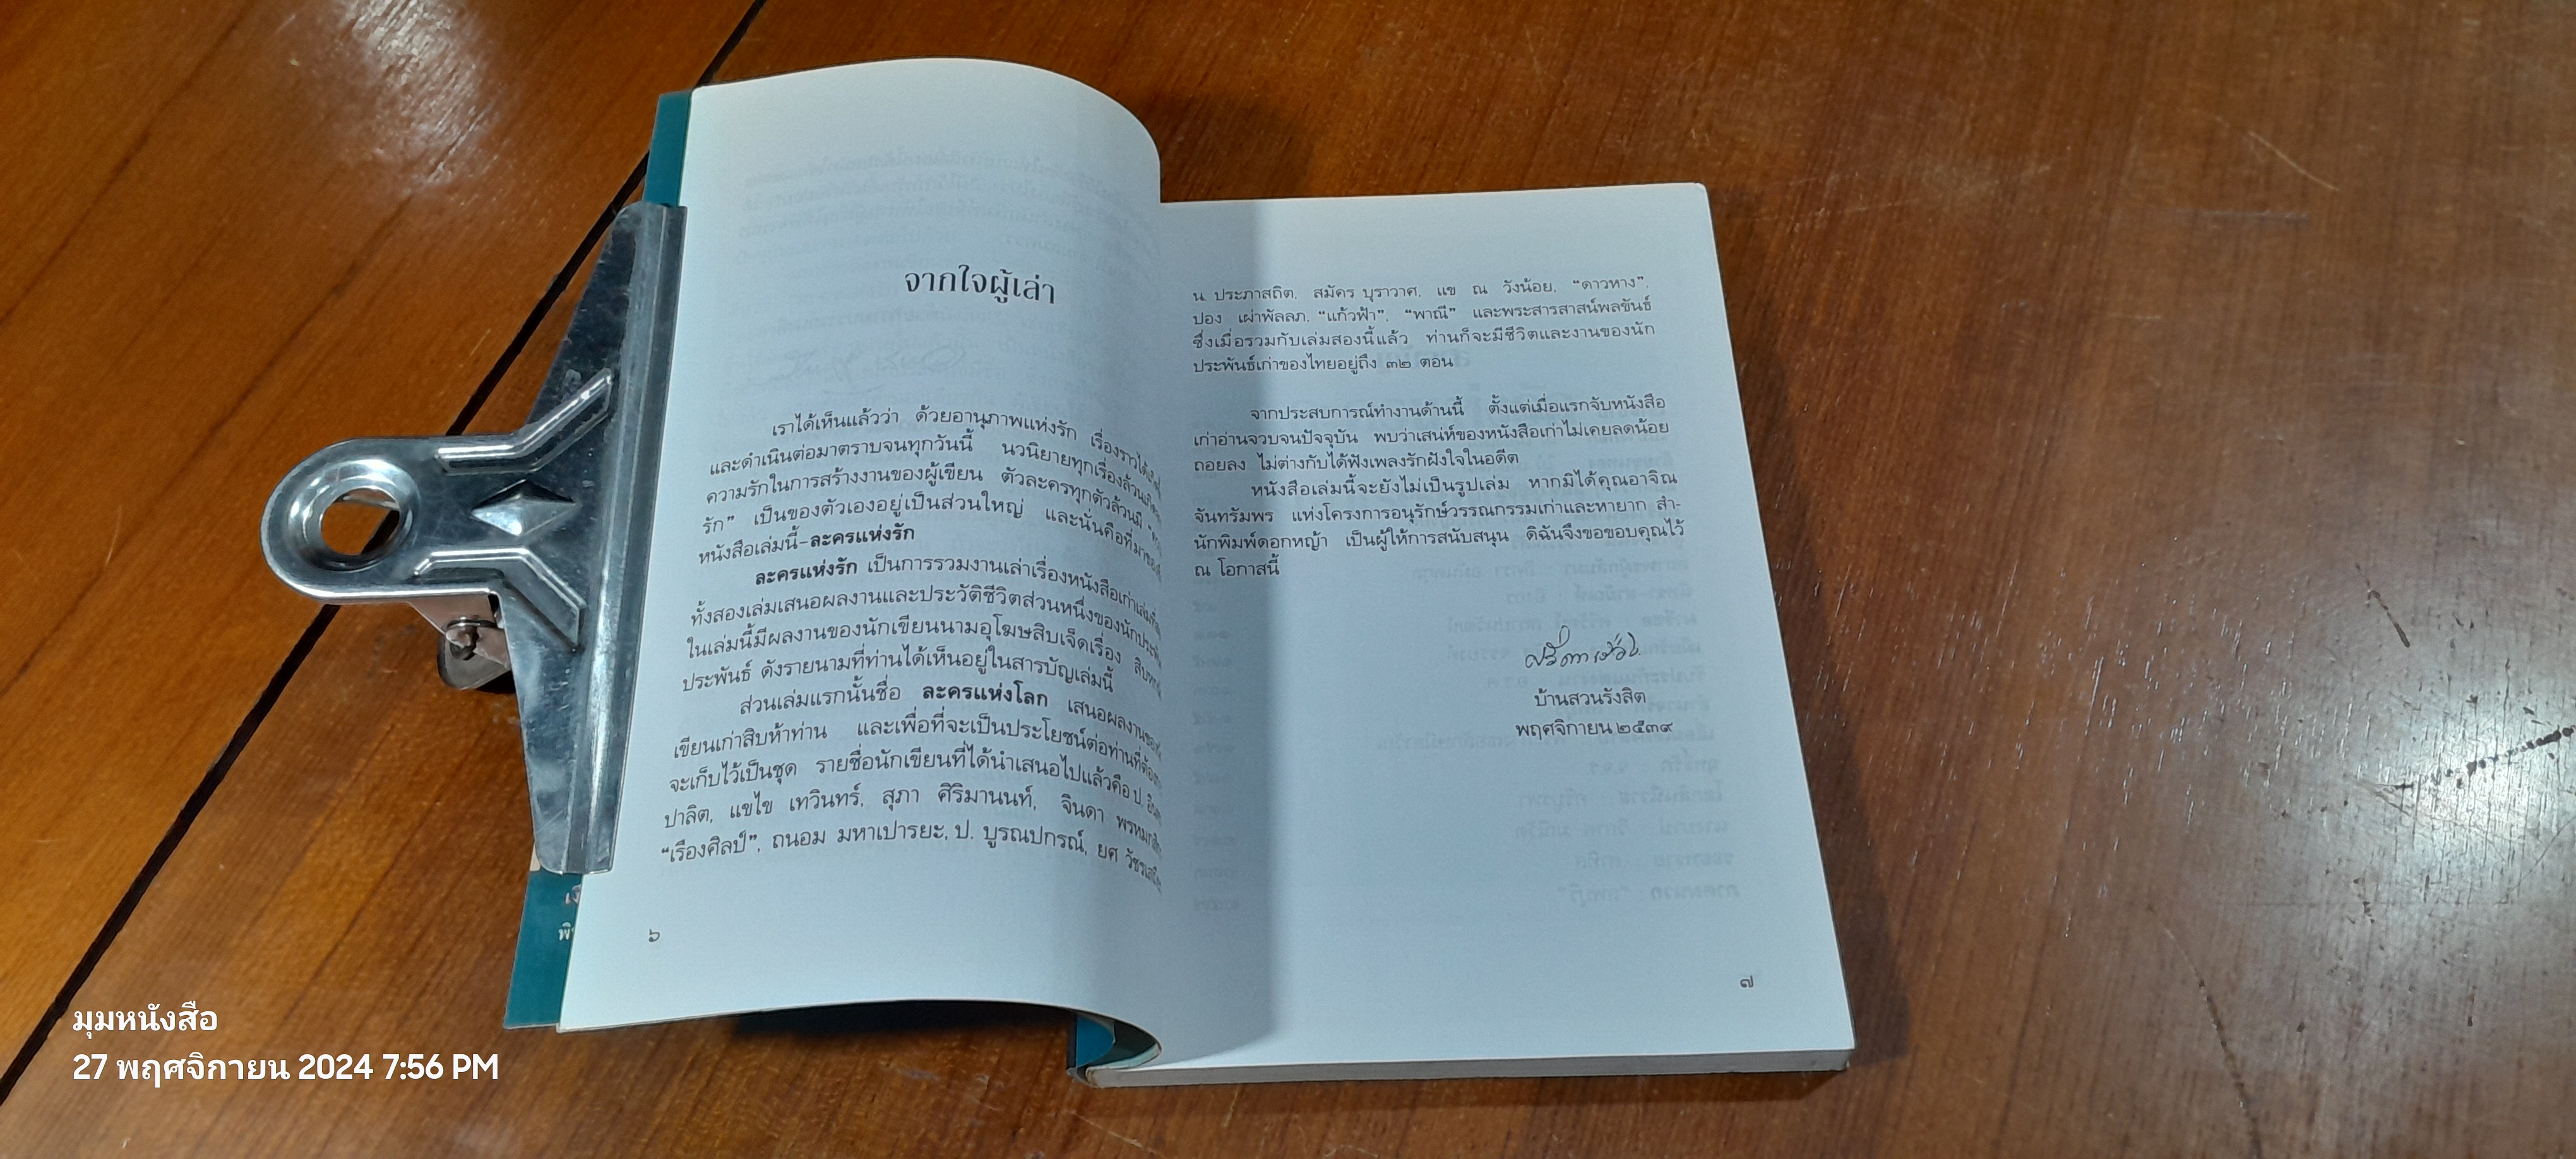 จากใจผู้เล่า
เราได้เห็นแล้วว่า ด้วยอานุภาพแห่งรัก เรื่องราวได้เกิดขึ้น
และดำเนินต่อมาตราบจนทุกวันนี้ นวนิยายทุกเรื่องล้วนเกิดจาก
ความรักในการสร้างงานของผู้เขียน ตัวละครทุกตัวล้วนมี
รัก” เป็นของตัวเองอยู่เป็นส่วนใหญ่ และนั่นคือที่มาของชื่อ
หนังสือเล่มนี้-ละครแห่งรัก
ละครแห่งรัก เป็นการรวมงานเล่าเรื่องหนังสือเก่าเล่มที่สอง
ทั้งสองเล่มเสนอผลงานและประวัติชีวิตส่วนหนึ่งของนักประพันธ์
ในเล่มนี้มีผลงานของนักเขียนนามอุโฆษสิบเจ็ดเรื่อง
ประพันธ์ ดังรายนามที่ท่านได้เห็นอยู่ในสารบัญเล่มนี้
ส่วนเล่มแรกนั้นชื่อ ละครแห่งโลก เสนอผลงานของนัก
เขียนเก่าสิบห้าท่าน และเพื่อที่จะเป็นประโยชน์ต่อท่านที่ต้องการ
จะเก็บไว้เป็นชุด รายชื่อนักเขียนที่ได้นำเสนอไปแล้วคือ ป. อินทร
ปาลิต, แขไข เทวินทร์, สุภา ศิริมานนท์, จินดา
“เรืองศิลป์”, ถนอม มหาเปารยะ, ป. บูรณปกรณ์, ยศ วัชรเสถียร
๖
น. ประภาสถิต, สมัคร บุราวาศ, แข ณ วังน้อย, “ดาวหาง”,
ปอง เผ่าพัลลภ, “แก้วฟ้า”, “พาณี” และพระสารสาสน์พลขันธ์
ซึ่งเมื่อรวมกับเล่มสองนี้แล้ว ท่านก็จะมีชีวิตและงานของนัก
ประพันธ์เก่าของไทยอยู่ถึง ๓๒ ตอน
จากประสบการณ์ทำงานด้านนี้ ตั้งแต่เมื่อแรกจับหนังสือ
เก่าอ่านจวบจนปัจจุบัน พบว่าเสน่ห์ของหนังสือเก่าไม่เคยลดน้อย
ถอยลง ไม่ต่างกับได้ฟังเพลงรักฝังใจในอดีต
หนังสือเล่มนี้จะยังไม่เป็นรูปเล่ม หากมิได้คุณอาจิณ
จันทรัมพร แห่งโครงการอนุรักษ์วรรณกรรมเก่าและหายาก สำ-
นักพิมพ์ดอกหญ้า เป็นผู้ให้การสนับสนุน ดิฉันจึงขอขอบคุณไว้
ณ โอกาสนี้
บ้านสวนรังสิต
พฤศจิกายน ๒๕๓๙
๗
มุมหนังสือ
27 พฤศจิกายน 2024 7:56 PM